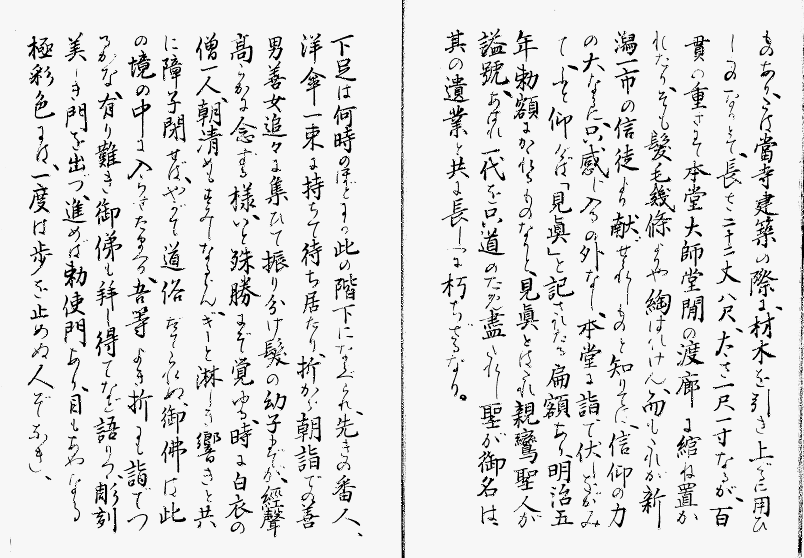 ものあり、こは當寺建築の際に、材木を引き上ぐに用ひ
しものなりとて、長せ二十二丈八尺、大さ一尺一寸なるが、百
貫の重さもて本堂大師堂間の渡廊に綰ね置か
れたり、そも髪毛幾條もや綯はれけん、而もこれが新
潟一市の信徒より献ぜられしものと知りては、信仰の力
の大なるに只感じ入るの外なし、本堂に詣で伏しをがみ
て、ふと仰げば「見眞」と記されたる扁額あり、明治五
年勅額にかゝるものならし、見眞とはこれ親鸞聖人が
謚號、あはれ一代を只道のために盡されし聖が御名は、
其の遺業と共に長しへに朽ちざるなり。
下足は何時のほどにか此の階下にならべられ、先きの番人、
洋傘一束に持ちて待ち居たり、折から朝詣での善
男善女追々に集ひて振り分け髪の幼子までが、經聲
高らかに念ずる様、いと殊勝にぞ覚ゆる、時に白衣の
僧一人、朝清めもすみしならむ、ギーと淋しき響きと共
に障子閉せば、やがて道俗 へだてられぬ、御佛は此
の境の中に入らせたまへる、吾等よき折にも詣でつ
るかな、有り難き御俤も拜し得てなど語りつゝ、彫刻
美しき門を出づ、進めば勅使門あり、目もあやなる
極彩色には、一度は歩を止めぬ人ぞなき、